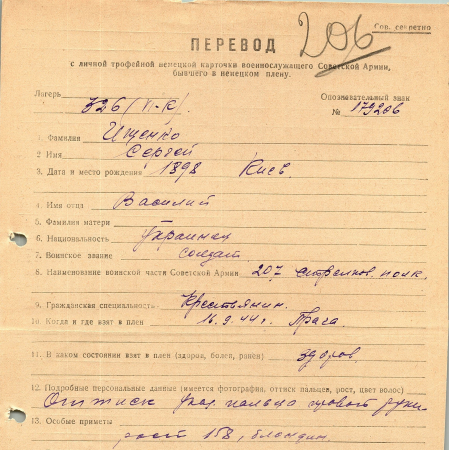 206
Сов. секретно
ПЕРЕВОД
с личной трофейной немецкой карточки военнослужащего Советской Армии,
бывшего в немецком плену.
Лагерь 326/VI-К/
Опознавательный знак
№ 179206
1 Фамилия Ищенко
2 Имя Сергей
3. Дата и место рождения 1898 Киев.
4. Имя отца Василий
5. Фамилия матери
6. Национальность Украинец
7. Воинское звание солдат
8. Наименование воинской части Советской Армии 207 стрелков. полк.
9. Гражданская специальность Крестьянин.
10. Когда и где взят в плен 16.9.44 г. Прага.
11. В каком состоянии взят в плен (здоров, болен, ранен) здоров.
12. Подробные персональные данные (имеется фотография, оттиск пальцев, рост, цвет волос)
Оттиск указ. пальца правой руки
13. Особые приметы
рост 158, блондин.